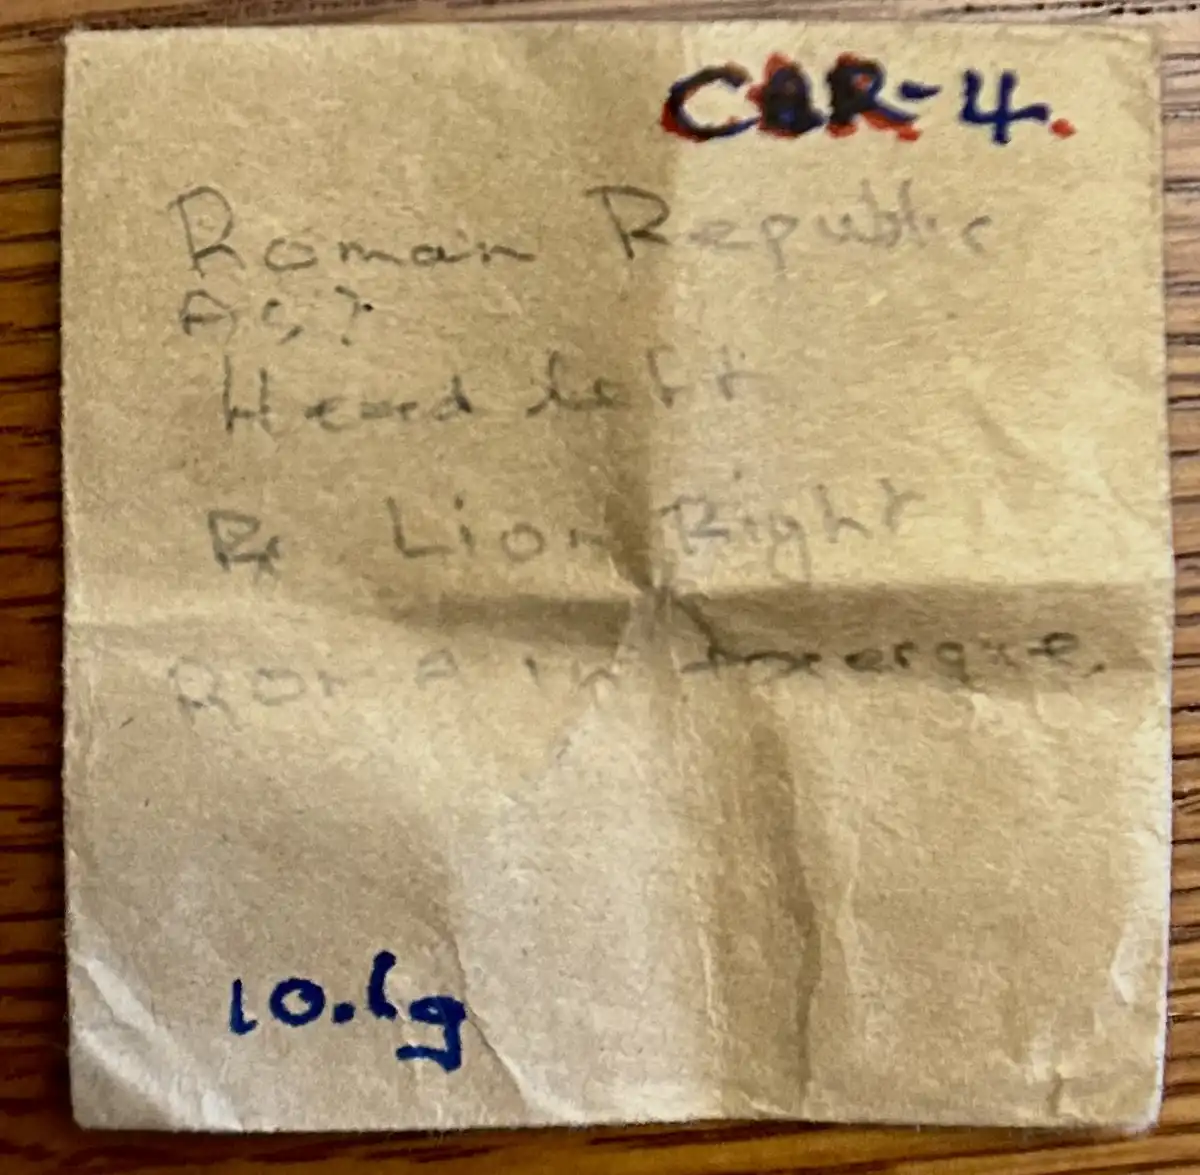 CAR-4.
Roman Republic
As?
Head left
Rx Lion Right
ROMA in exergue.
10.1g